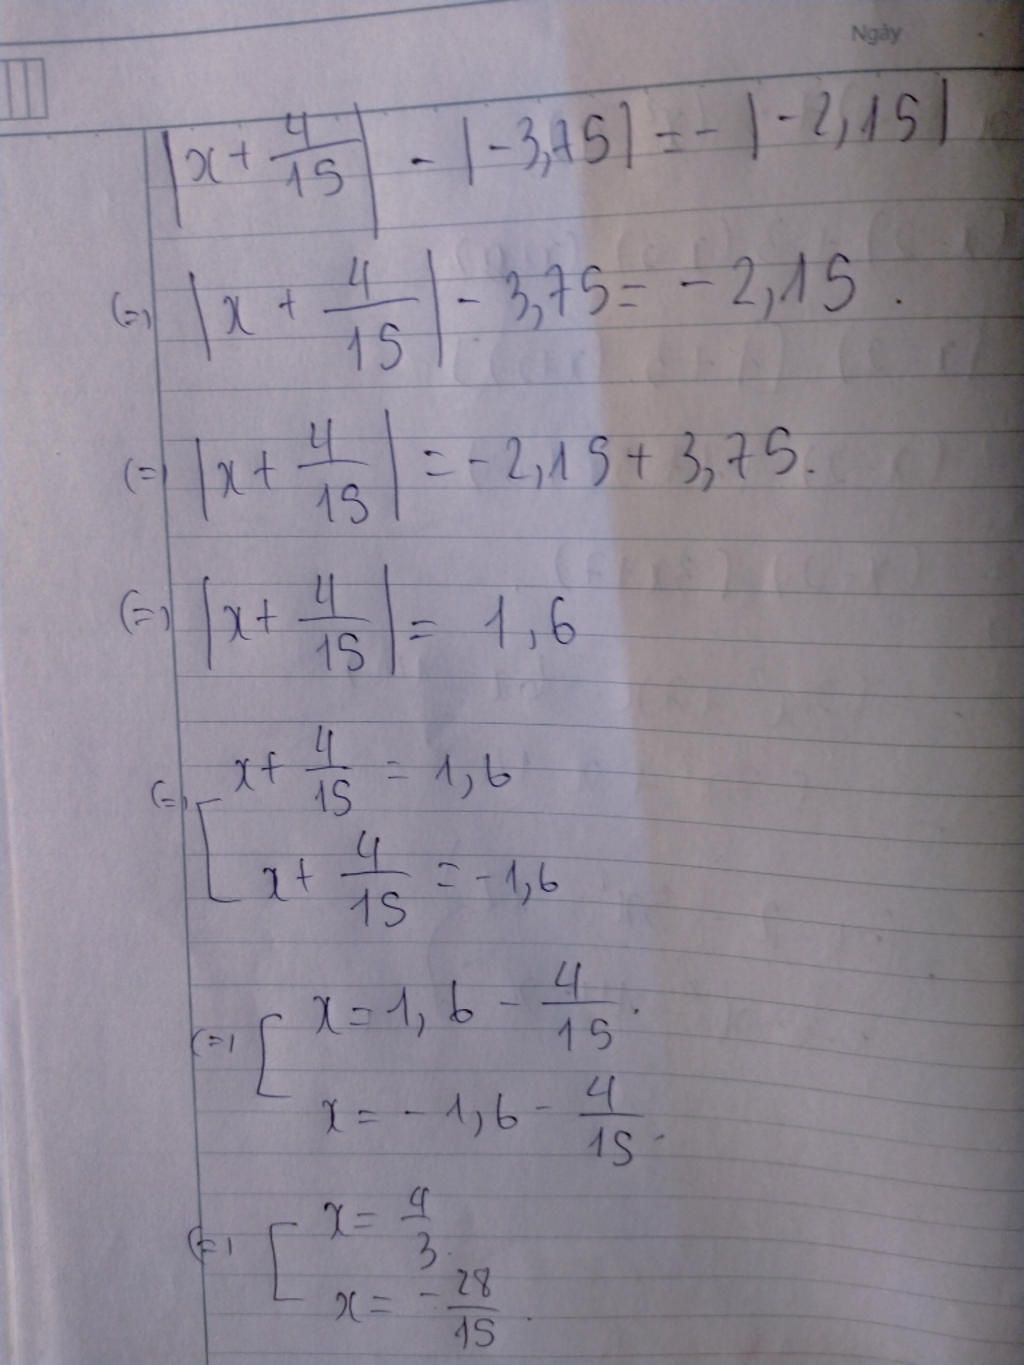 Ngày
|x + 4/15| - |-3,75| = - |-2,15|
(=) |x + 4/15| - 3,75 = - 2,15.
(=) |x + 4/15| = -2,15 + 3,75.
(=) |x + 4/15| = 1,6
(=) [ x + 4/15 = 1,6
x + 4/15 = -1,6
(=) [ x = 1,6 - 4/15.
x = - 1,6 - 4/15.
(=) [ x = 4/3.
x = - 28/15.